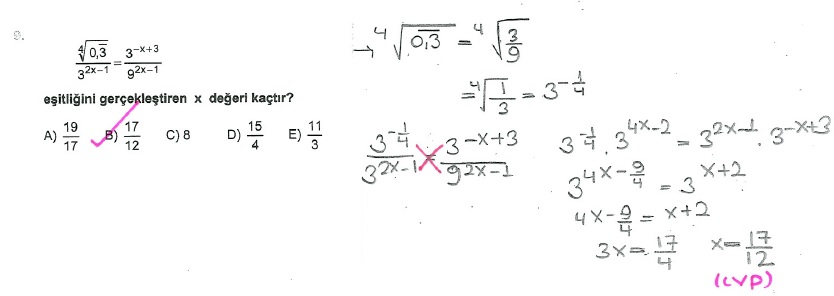 9.
∜(0,3̅) / 3^(2x–1) = 3^(–x+3) / 9^(2x–1)
eşitliğini gerçekleştiren x değeri kaçtır?
A) 19/17 B) 17/12 C) 8 D) 15/4 E) 11/3
→ ∜(0,3̅) = ∜(3/9)
= ∜(1/3) = 3^(-1/4)
3^(-1/4) / 3^(2x-1) = 3^(-x+3) / 9^(2x-1)
3^(-1/4) . 3^(4x-2) = 3^(2x-1) . 3^(-x+3)
3^(4x-9/4) = 3^(x+2)
4x-9/4 = x+2
3x = 17/4 x = 17/12
(CVP)